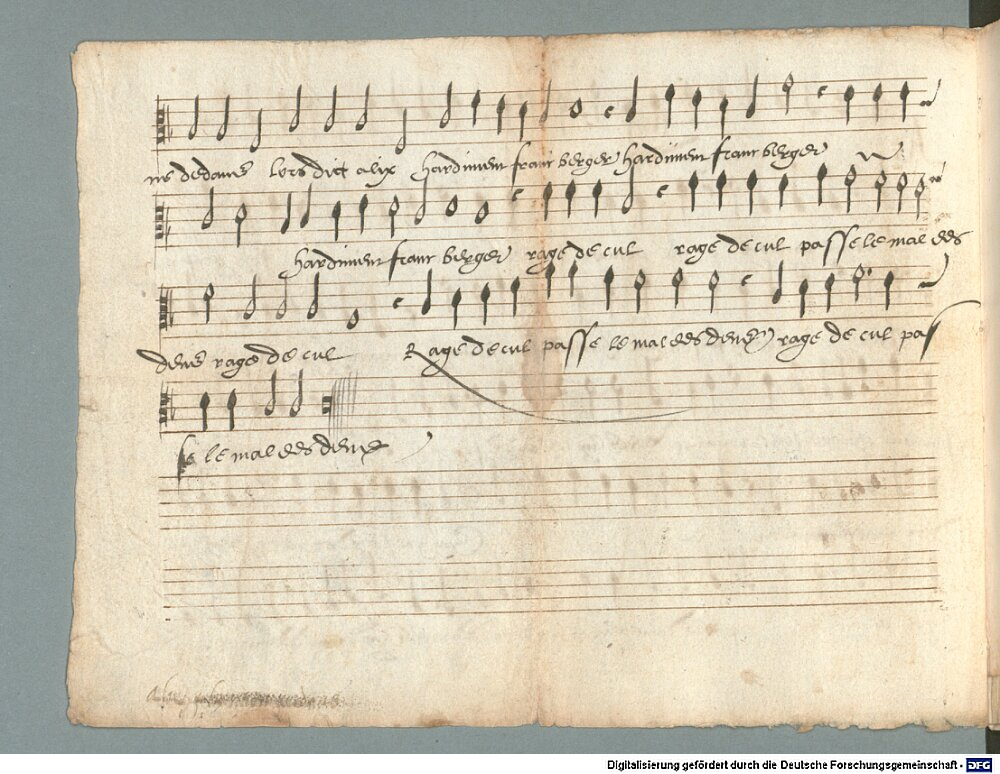 ne dedans lors dict alix hardiment franc berger hardiment franc berger
hardiment franc berger rage de cul rage de cul passe le mal des
dens rage de cul Rage de cul passe le mal des dens rage de cul pas
se le mal des dens
Digitalisierung gefördert durch die Deutsche Forschungsgemeinschaft - DFG